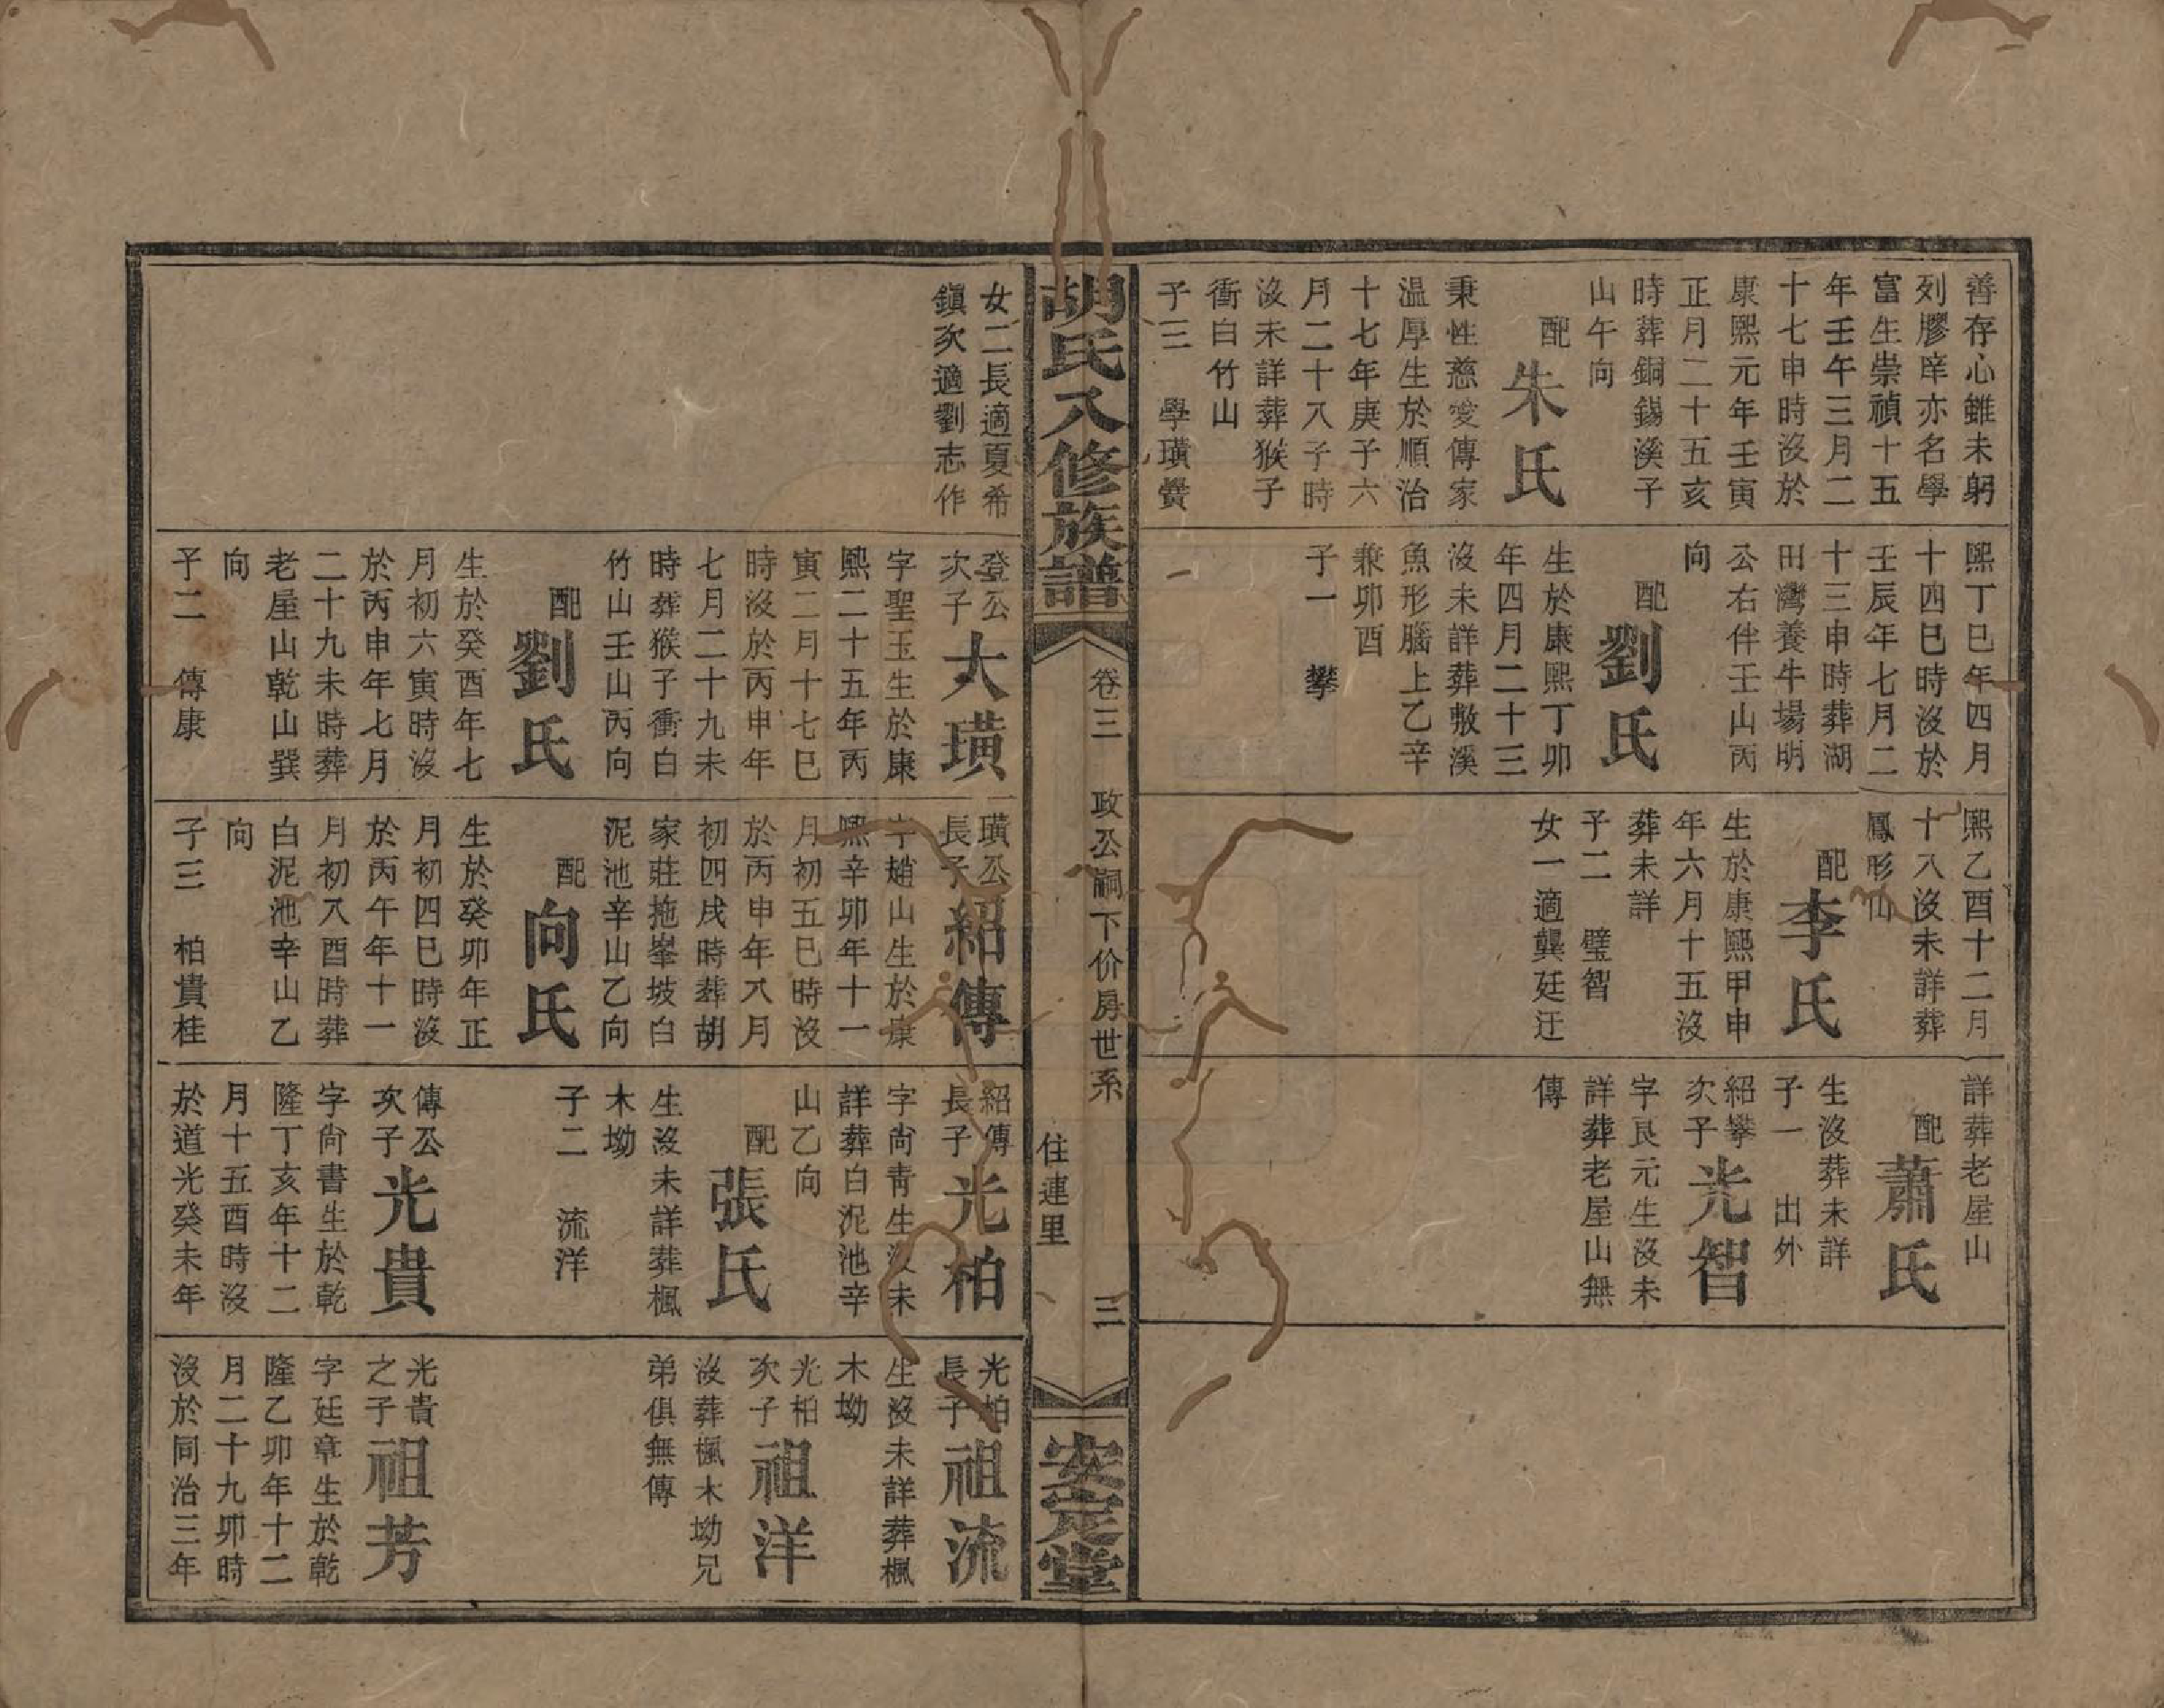 善存心雖未躬
列膠庠亦名學
富生崇禎十五
年壬午三月二
十七申時沒於
康熙元年壬寅
正月二十五亥
時葬銅錫溪子
山午向
配朱氏
秉性慈愛傳家
溫厚生於順治
十七年庚子六
月二十八子時
沒未詳葬猴子
衝白竹山
子三 學璜黌
熙丁巳年四月
十四巳時沒於
壬辰年七月二
十三申時葬湖
田灣養牛場明
公右伴壬山丙
向
配劉氏
生於康熙丁卯
年四月二十三
沒未詳葬敷溪
魚形腦上乙辛
兼卯酉
子一 攀
熙乙酉十二月
十八沒未詳葬
鳳形仙
配李氏
生於康熙甲申
年六月十五沒
葬未詳
子二 璧智
女一適龔廷迋
詳葬老屋山
配蕭氏
生沒葬未詳
子一 出外
紹攀
次子光智
字良元生沒未
詳葬老屋山無
傳
胡氏八修族譜
卷三 政公嗣下价房世系 住連里 三
安定堂
女二長適夏希
鎮次適劉志作
登公
次子大璜
字聖玉生於康
熙二十五年丙
寅二月十七巳
時沒於丙申年
七月二十九未
時葬猴子衝白
竹山壬山丙向
配劉氏
生於癸酉年七
月初六寅時沒
於丙申年七月
二十九未時葬
老屋山乾山巽
向
子二 傳康
璜公
長子紹傳
字趙山生於康
熙辛卯年十一
月初五巳時沒
於丙申年八月
初四戌時葬胡
家莊拖峯坡白
泥池辛山乙向
配向氏
生於癸卯年正
月初四巳時沒
於丙午年十一
月初八酉時葬
白泥池辛山乙
向
子三 柏貴桂
紹傳
長子光柏
字尚青生沒未
詳葬白泥池辛
山乙向
配張氏
生沒未詳葬楓
木坳
子二 流洋
傳公
次子光貴
字尚書生於乾
隆丁亥年十二
月十五酉時沒
於道光癸未年
光柏
長子祖流
生沒未詳葬楓
木坳
光柏
次子祖洋
沒葬楓木坳兄
弟俱無傳
光貴
之子祖芳
字廷章生於乾
隆乙卯年十二
月二十九卯時
沒於同治三年